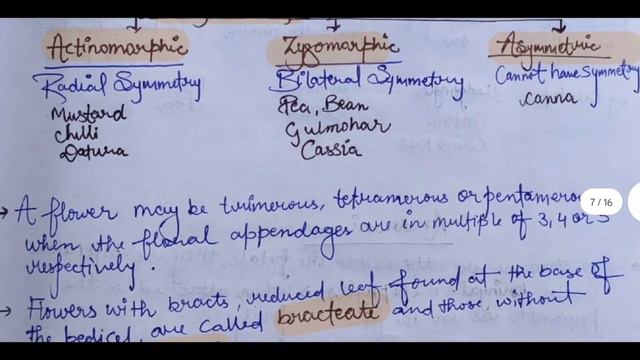 Actinomorphic Zygomorphic Asymmetric
Radial Symmetry Bilateral Symmetry Cannot have symmetry
Mustard Pea, Bean canna
Chilli Gulmohar
Datura Cassia
→ A flower may be trimerous, tetramerous or pentamerous
7 / 16
when the floral appendages are in multiple of 3, 4 or 5
respectively.
→ Flowers with bracts, reduced leaf found at the base of
the pedicel, are called bracteate and those, without